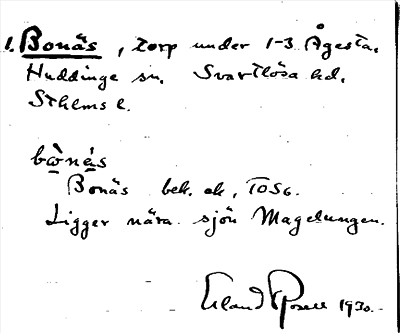 1. Bonäs, torp under 1-3 Ågesta,
Huddinge sn. Svartlösa hd,
Sthlms l.
bὼnä́s
Bonäs bek. ek, TOS6.
Ligger nära sjön Magelungen.
Erland Rosell 1930.